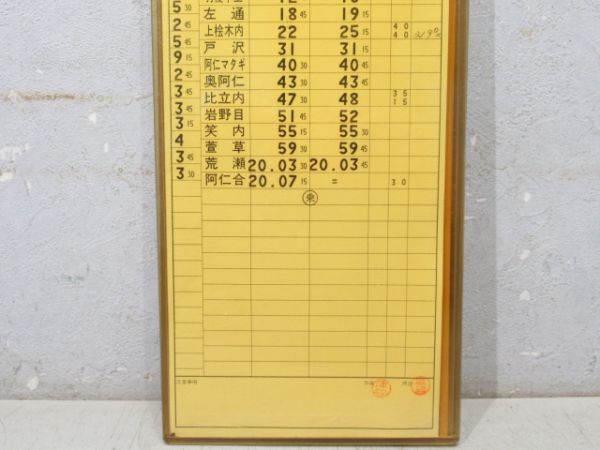 5 30 左通 18 45 19 15
2 45 上桧木内 22 25 15 40 40
5 45 戸沢 31 31 15
9 阿仁マタギ 40 30 40 45
2 45 奥阿仁 43 30 43 45
3 比立内 47 30 48 35 15
3 45 岩野目 51 45 52
3 15 笑内 55 15 55 30
4 萱草 59 30 59 45
3 45 荒瀬 20.03 30 20.03 45
3 30 阿仁合 20.07 15 = 30